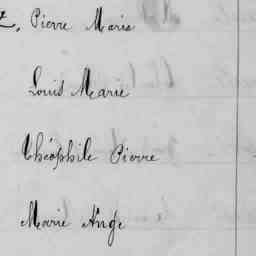 Z, Pierre Marie
Louis Marie
Théophile Pierre
Marie Ange